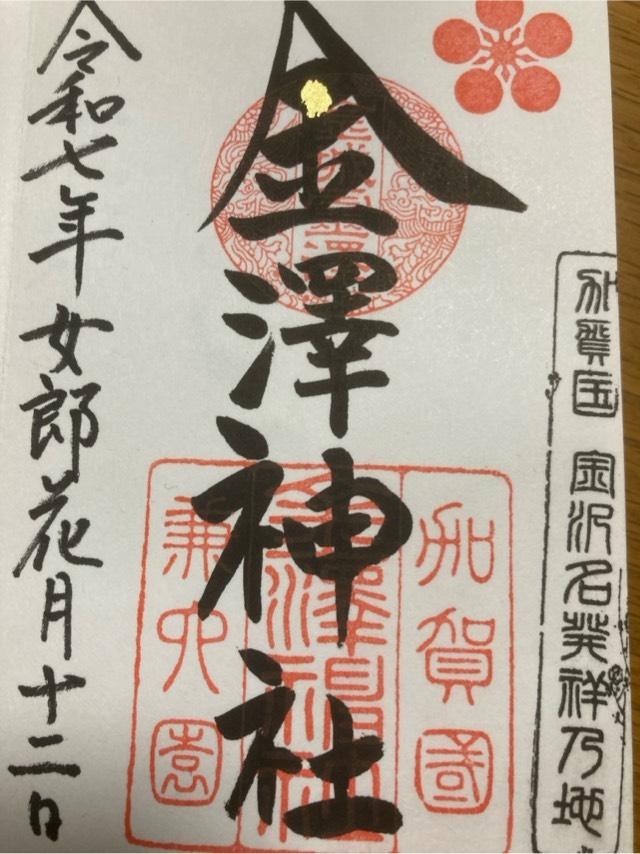 加賀国 金沢名発祥乃地
加賀國
金澤神社
兼六園
金澤神社
令和七年女郎花月十二日